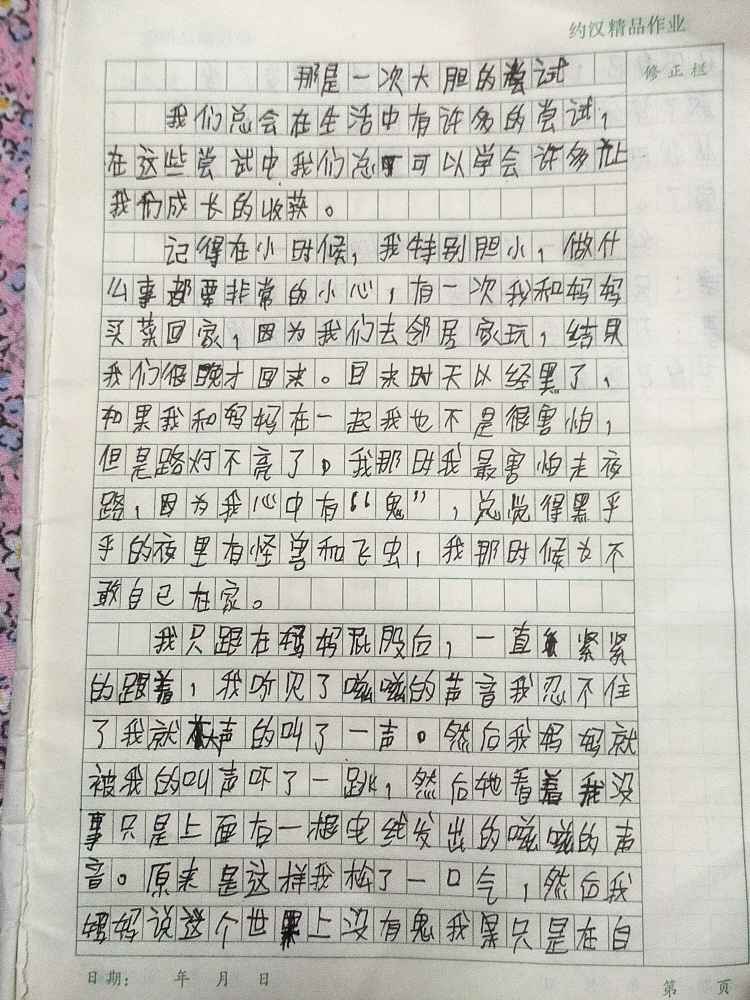 约汉精品作业
修正栏
那是一次大胆的尝试
我们总会在生活中有许多的尝试,
在这些尝试中我们总可以学会许多让
我们成长的收获。
记得在小时候,我特别胆小,做什
么事都要非常的小心,有一次我和妈妈
买菜回家,因为我们去邻居家玩,结果
我们很晚才回来。回来时天以经黑了、
如果我和妈妈在一起我也不是很害怕,
但是路灯不亮了。我那时我最害怕走夜
路,因为我心中有“鬼”,总觉得黑乎
乎的夜里有怪兽和飞虫,我那时候为不
敢自己在家。
我只跟在妈妈屁股后,一直紧紧
的跟着,我听见了嗞嗞的声音我忍不住
了我就大声的叫了一声。然后我妈妈就
被我的叫声吓了一跳,然后她看着我没
事只是上面有一根电线发出的嗞嗞的声
音。原来是这样我松了一口气,然后我
妈妈说这个世界上没有鬼我果只是在自
日期: 年 月 日
第 页